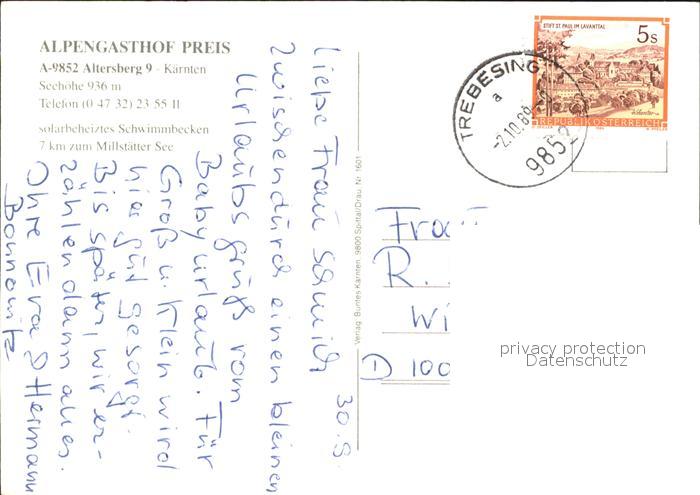 ALPENGASTHOF PREIS
A-9852 Altersberg 9 - Kärnten
Seehöhe 936 m
Telefon (0 47 32) 23 55 11
solarbeheiztes Schwimmbecken
7 km zum Millstätter See
30.9.
Liebe Frau Schmidt
Zwischendurch einen kleinen
Urlaubsgruß vom
Babyurlaub. Für
Groß u. Klein wird
hier gut gesorgt.
Bis später, wir er-
zählen dann alles.
Ihre Eva & Hermann
Verlag Buntes Kärnten, 9800 Spittal/Drau Nr. 1601
STIFT ST. PAUL IM LAVANTTAL
5 S
REPUBLIK ÖSTERREICH
TREBESING
a
-2.10.86
9852
Frau
R.
Wi
D 100
privacy protection
Datenschutz